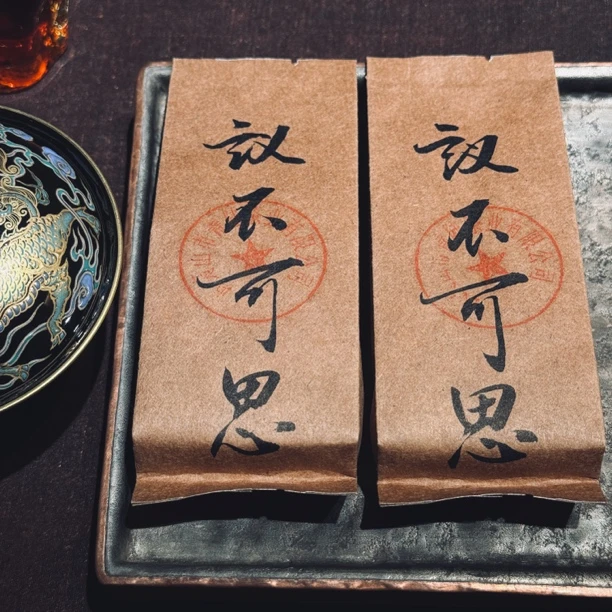 议不可思
议不可思